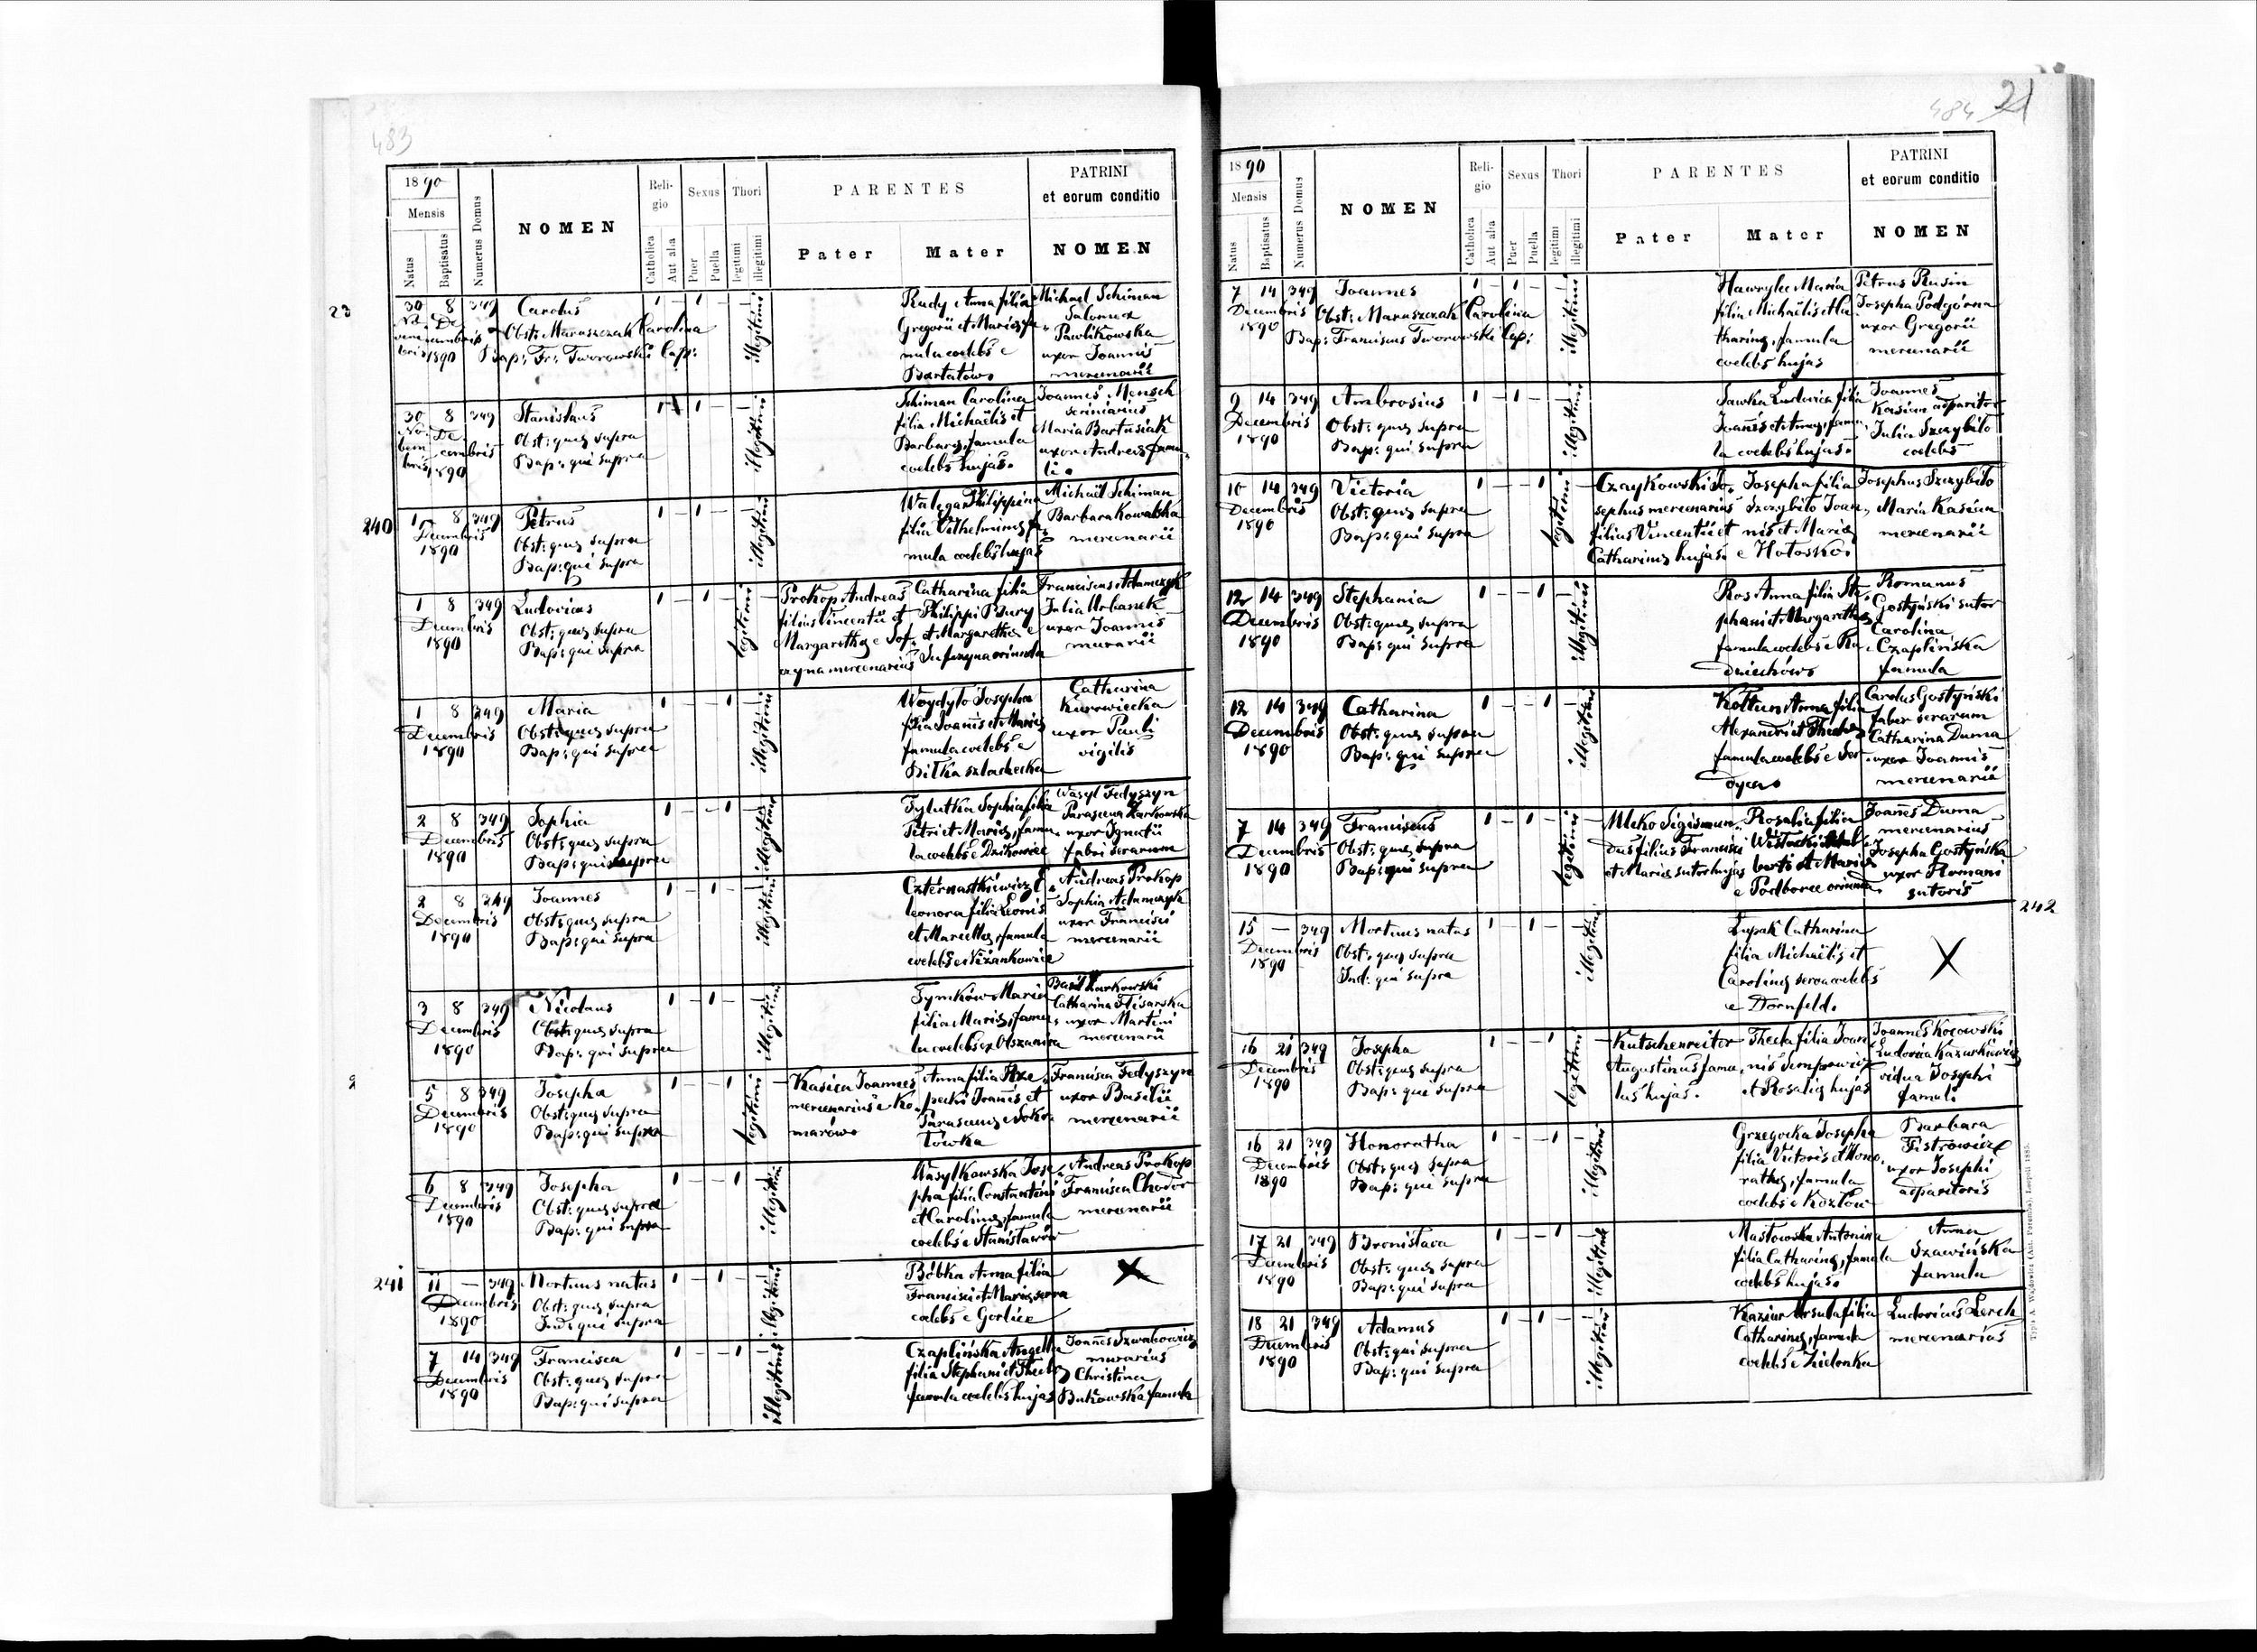 483
1890
Mensis
Natus
Baptisatus
Numerus Domus
NOMEN
Religio
Catholica
Aut alia
Sexus
Puer
Puella
Thori
legitimi
illegitimi
PARENTES
Pater
Mater
PATRINI
et eorum conditio
NOMEN
23
30 8 349 Carolus 1 - 1 - illegitimi
Obst: Maruszczak Carolina
1890 Bap: Fr: Tworowski Cap:
Rudy Anna filia
Gregorii et Mariæ, fa-
mula coelebs e
Bartatów
Michael Schiman
Salomea
Pawlikowska
uxor Joannis
mercenarii
30 8 349 Stanislaus 1 1 - illegitimi
Obst: quæ supra
1890 Bap: qui supra
Schiman Carolina
filia Michaëlis et
Barbaræ, famula
coelebs hujas.
Joannes Mensch
Maria Bartusiak
uxor Andreæ famu-
li.
240
1 8 349 Petrus 1 - 1 - illegitimi
Decembris Obst: quæ supra
1890 Bap: qui supra
Philippina
filia Wilhelminæ, fa-
mula coelebs hujas
Michaël Schiman
Barbara Kowalska
mercenarii
1 8 349 Ludovicus 1 - 1 - legitimi
Decembris Obst: quæ supra
1890 Bap: qui supra
Prokop Andreas
filius Vincentii et
Margarethæ e Suf-
czyna mercenarius
Catharina filia
Philippi Bury
et Margarethæ e
Sufczyna oriunda
Franciscus Adamczyk
Julia Urbanek
uxor Joannis
murarii
1 8 349 Maria 1 - - 1 illegitimi
Decembris Obst: quæ supra
1890 Bap: qui supra
Woydyło Josepha
filia Joannis et Mariæ
famula coelebs e
Biłka szlachecka
Catharina
Kurowiecka
uxor Pauli
vigilis
2 8 349 Sophia 1 - - 1 illegitimi
Decembris Obst: quæ supra
1890 Bap: qui supra
Tylutka Sophia filia
Petri et Mariæ, famu-
la coelebs e Dzikowiec
Wasyl Fedyszyn
Parascewa Karkowska
uxor Ignatii
fabri serarum
2 8 349 Joannes 1 - 1 - illegitimi
Decembris Obst: quæ supra
1890 Bap: qui supra
Czternastkiewicz E-
leonora filia Leonis
et Marcellæ, famula
coelebs e Niżankowice
Andreas Prokop
Sophia Adamczyk
uxor Francisci
mercenarii
3 8 349 Nicolaus 1 - 1 - illegitimi
Decembris Obst: quæ supra
1890 Bap: qui supra
Tymków Maria
filia Mariæ, famu-
la coelebs ex Olszanica
Basil Karkowski
Catharina Flisarska
uxor Martini
mercenarii
2
5 8 349 Josepha 1 - - 1 legitimi
Decembris Obst: quæ supra
1890 Bap: qui supra
Kasica Joannes
mercenarius e Ko-
marów
Anna filia
Joannis et
Parascevæ e Soko-
łówka
Francisca Fedyszyn
uxor Basilii
mercenarii
6 8 349 Josepha 1 - - 1 illegitimi
Decembris Obst: quæ supra
1890 Bap: qui supra
Wasylkowska Jose-
pha filia Constantini
et Carolinæ, famula
coelebs e Stanisławów
Andreas Prokop
Francisca Chodor
mercenarii
241
11 - 349 Mortuus natus 1 - 1 - illegitimi
Decembris Obst: quæ supra
1890 Ind: qui supra
Bóbka Anna filia
Francisci et Mariæ, serva
coelebs e Gorlice
7 14 349 Francisca 1 - - 1 illegitimi
Decembris Obst: quæ supra
1890 Bap: qui supra
Czaplińska Angella
filia Stephani et Theclæ
famula coelebs hujas
Joannes Szwabowicz
murarius
Christina
Bukowska famula
484 21
1890
Mensis
Natus
Baptisatus
Numerus Domus
NOMEN
Religio
Catholica
Aut alia
Sexus
Puer
Puella
Thori
legitimi
illegitimi
PARENTES
Pater
Mater
PATRINI
et eorum conditio
NOMEN
7 14 349 Joannes 1 - 1 - illegitimi
Decembris Obst: Maruszczak Carolina
1890 Bap: Franciscus Tworowski Cap:
Hawryluk Maria
filia Michaëlis et Ca-
tharinæ, famula
coelebs hujas
Petrus Rusin
Josepha Podgórna
uxor Gregorii
mercenarii
9 14 349 Ambrosius 1 - 1 - illegitimi
Decembris Obst: quæ supra
1890 Bap: qui supra
Sawka Ludovica filia
Joannis et Annæ, famu-
la coelebs hujas.
Joannes
Kasica apparitor
Julia Szczybiło
coelebs
10 14 349 Victoria 1 - - 1 legitimi
Decembris Obst: quæ supra
1890 Bap: qui supra
Czaykowski Jo-
sephus mercenarius
filius Vincentii et
Catharinæ hujas.
Josepha filia
Szczybiło Joan-
nis et Mariæ
e Hołosko.
Josephus Szczybiło
Maria Kasica
mercenarii
12 14 349 Stephania 1 - - 1 illegitimi
Decembris Obst: quæ supra
1890 Bap: qui supra
Ros Anna filia Ste-
phani et Margarethæ
famula coelebs e Ra-
dziechów
Romanus
Gostyński sutor
Carolina
Czaplińska
famula
12 14 349 Catharina 1 - - 1 illegitimi
Decembris Obst: quæ supra
1890 Bap: qui supra
Kołtun Anna filia
Alexandri et Theclæ
famula coelebs e Ser-
dyca
Carolus Gostyński
faber serarum
Catharina Duma
uxor Joannis
mercenarii
7 14 349 Franciscus 1 - 1 - legitimi
Decembris Obst: quæ supra
1890 Bap: qui supra
Mleko Sigismun-
dus filius Francisci
et Mariæ sutor hujas
Rosalia filia
berti et Mariæ
e Podborce oriunda.
Joannes Duma
mercenarius
Josepha Gostyńska
uxor Romani
sutoris
242
15 - 349 Mortuus natus 1 - 1 - illegitimi
Decembris Obst: quæ supra
1890 Ind: qui supra
Łupak Catharina
filia Michaëlis et
Carolinæ serva coelebs
e Dornfeld.
16 21 349 Josepha 1 - - 1 legitimi
Decembris Obst: quæ supra
1890 Bap: qui supra
Kutschenreiter
Augustinus famu-
lus hujas.
Thecla filia Joan-
nis Sempowicz
et Rosaliæ hujas
Joannes Kocowski
Ludovica Kazurkiewicz
vidua Josephi
famuli
16 21 349 Honoratha 1 - - 1 - illegitimi
Decembris Obst: quæ supra
1890 Bap: qui supra
Grzegocka Josepha
filia Victoris et Hono-
rathæ, famula
coelebs e Kozłów
Barbara
Fistrowicz
uxor Josephi
apparitoris
17 21 349 Bronislava 1 - - 1 - illegitimi
Decembris Obst: quæ supra
1890 Bap: qui supra
Masłowska Antonina
filia Catharinæ, famula
coelebs hujas.
Anna
Szawińska
famula
18 21 349 Adamus 1 - 1 - illegitimi
Decembris Obst: qui supra
1890 Bap: qui supra
Kaziur Ursula filia
Catharinæ, famula
coelebs e Zielonka
Ludovicus Lerch
mercenarius